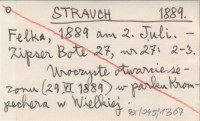 STRAUCH 1889.
Felka, 1889 am 2. Juli. –
Zipser Bote 27, nr 27: 2-3.
Uroczyste otwarcie se-
zonu (29 VI 1889) w parku Krom-
pechera w Wielkiej.